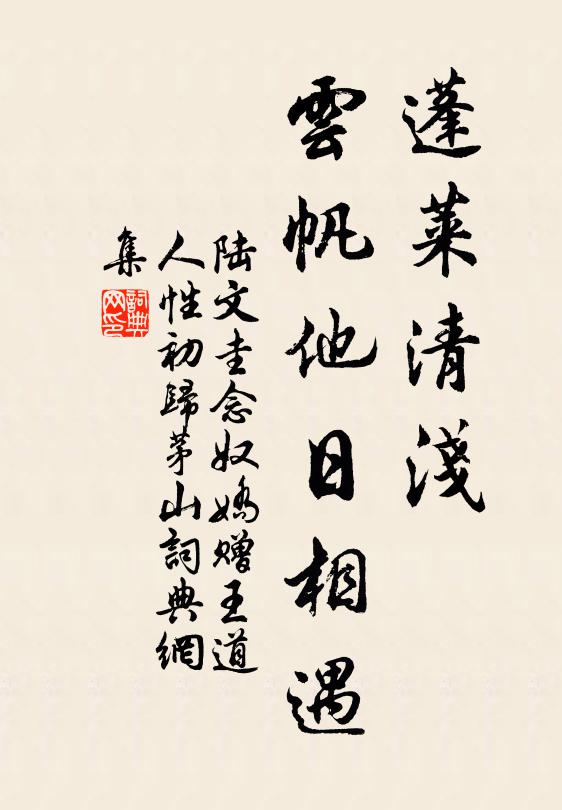 蓬萊清淺
雲帆他日相遇
陆文圭念奴嬌赠王道
人性初歸茅山詞典網
集
詞典
网印